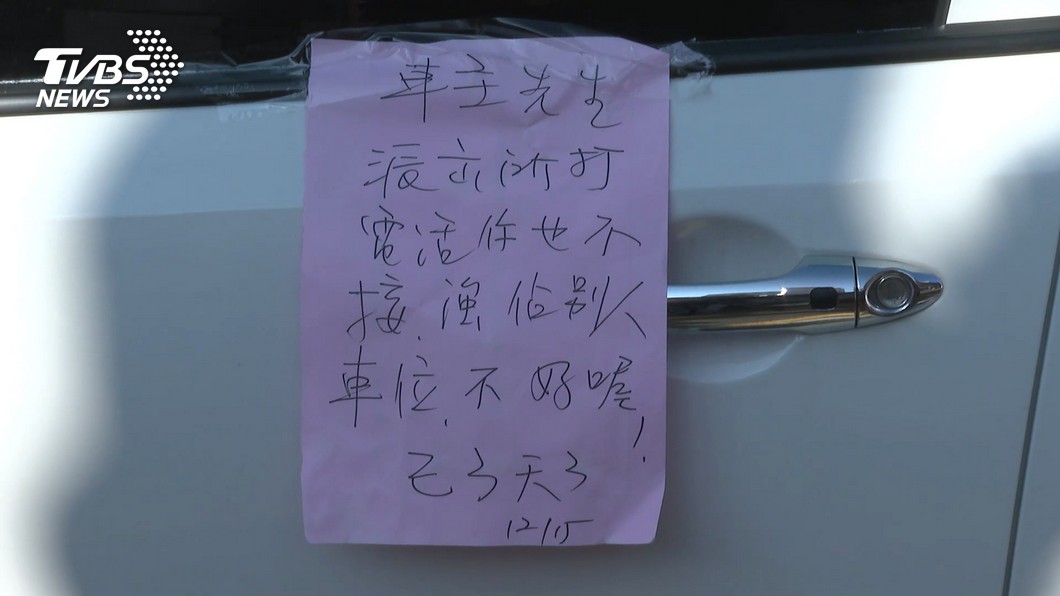 TVBS
NEWS
車主先生
派立所打
電話你也不
接.強佔別人
車位.不好喔!
已3天了
12/15